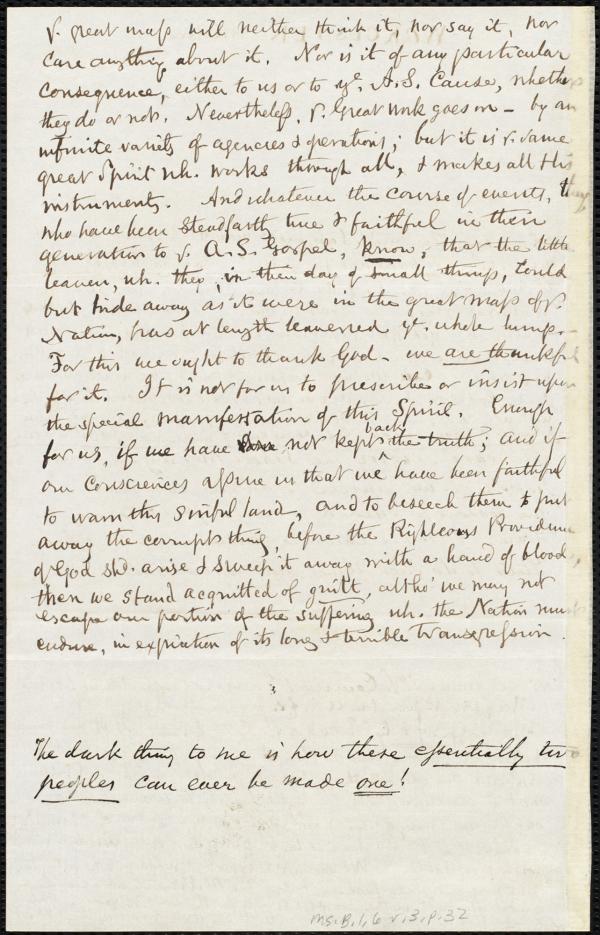 yᵉ great mass will neither think it, nor say it, nor
care anything about it. Nor is it of any particular
consequence, either to us or to yᵉ A.S. Cause, whether
they do or not. Nevertheless, yᵉ Great work goes on – by an
infinite variety of agencies & operations; but it is yᵉ same
great Spirit wh. works through all, & makes all His
instruments. And whatever the course of events, they
who have been steadfastly true & faithful in their
generation to yᵉ A.S. Gospel, know, that the little
leaven, wh. they, in their day of small things, could
but hide away as it were in the great mass of yᵉ
Nation, has at length leavened yᵉ whole lump. –
For this we ought to thank God – we are thankful
for it. It is not for us to prescribe or insist upon
the special manifestation of this Spirit. Enough
for us, if we have not kept back the truth; and if
our consciences assure us that we have been faithful
to warn this sinful land, and to beseech them to put
away the corrupt thing, before the Righteous Providence
of God shd. arise & sweep it away with a hand of blood,
then we stand acquitted of guilt, altho' we may not
escape our portion of the suffering wh. the Nation must
endure, in expiation of its long & terrible transgression.
The dark thing to me is how these essentially two
peoples can ever be made one!
Ms.B.1.6 v.3, p.32